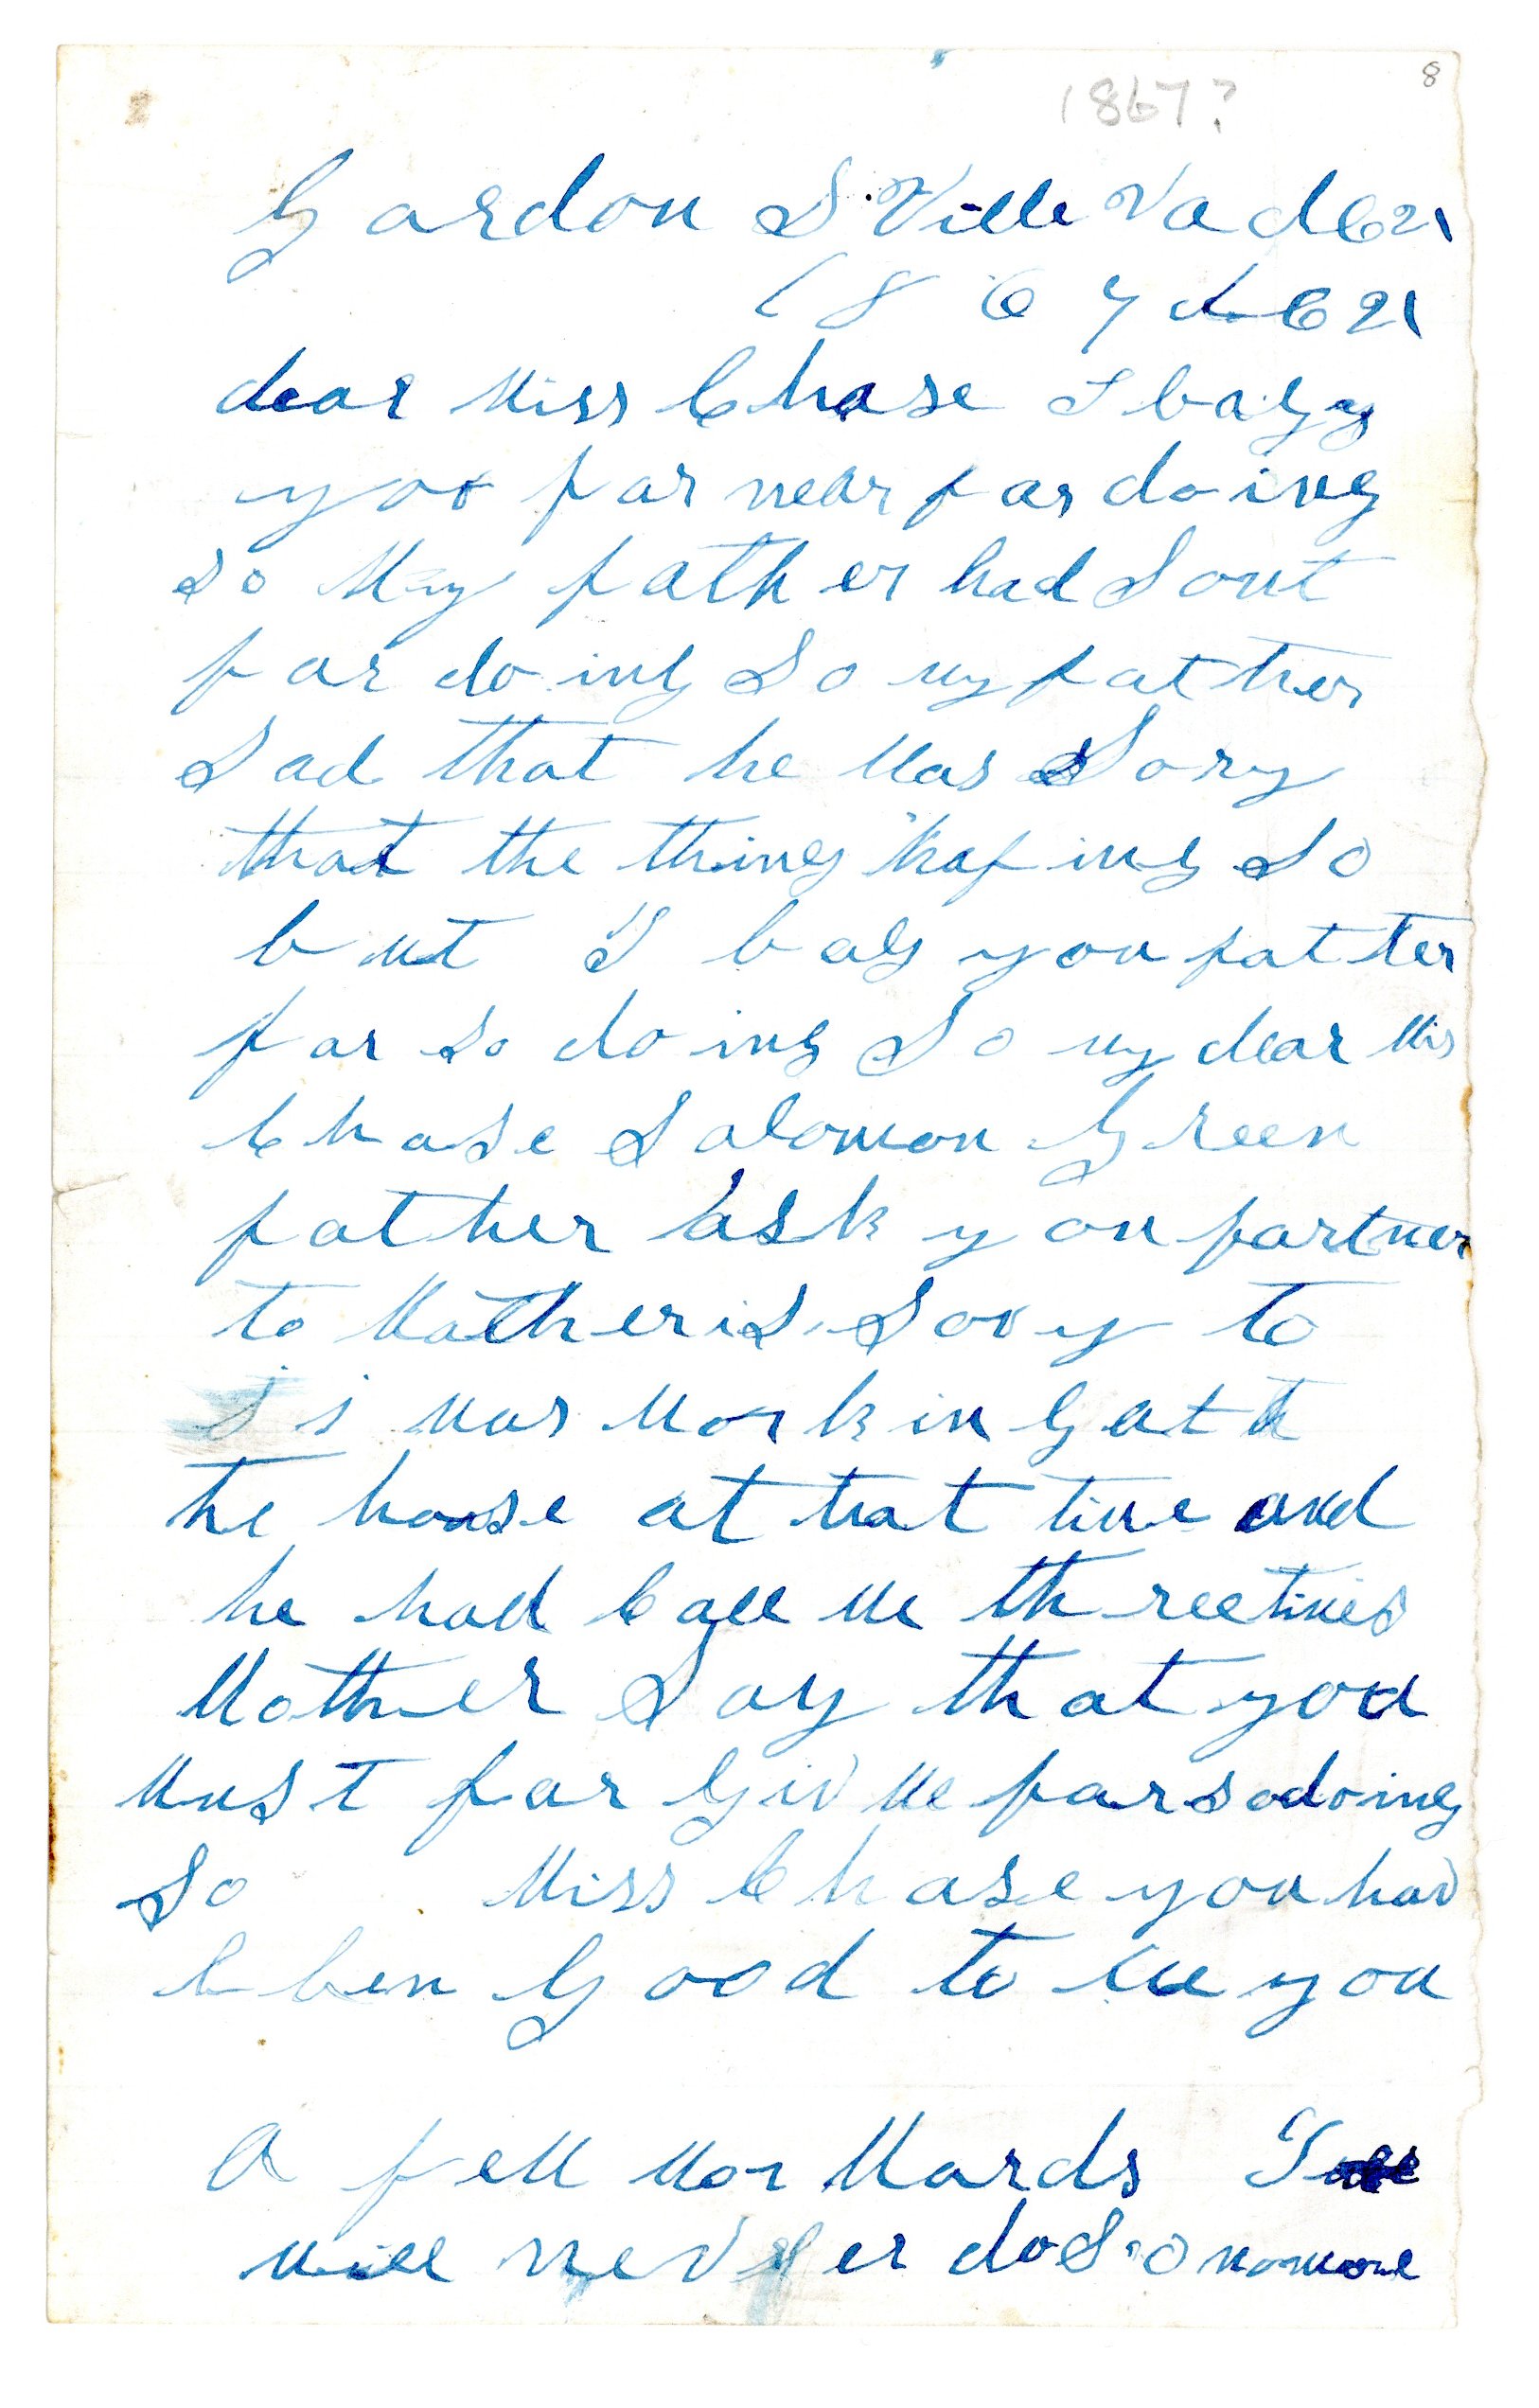 8
1867?
Gardon S Ville Va d C 21
1 8 6 7 d C 21
dear Miss Chase I bagg
you par ner far do ing
so My fath er had Sont
far do ing So my fat ther
Sad that he Was Sory
that the thing hap ing So
but I bag you pat ter
far So do ing So my dear Mis
Chase Salomon Green
father ask you partner
to Mother is Sory to
i Was Work in g at
the house at that time and
he had Call Me th ree times
Mother Say that you
Must far giv Me far so doing
So Miss Chase you hav
ben good to Me you
A feW Mor Wards I
Will nev er do So no more